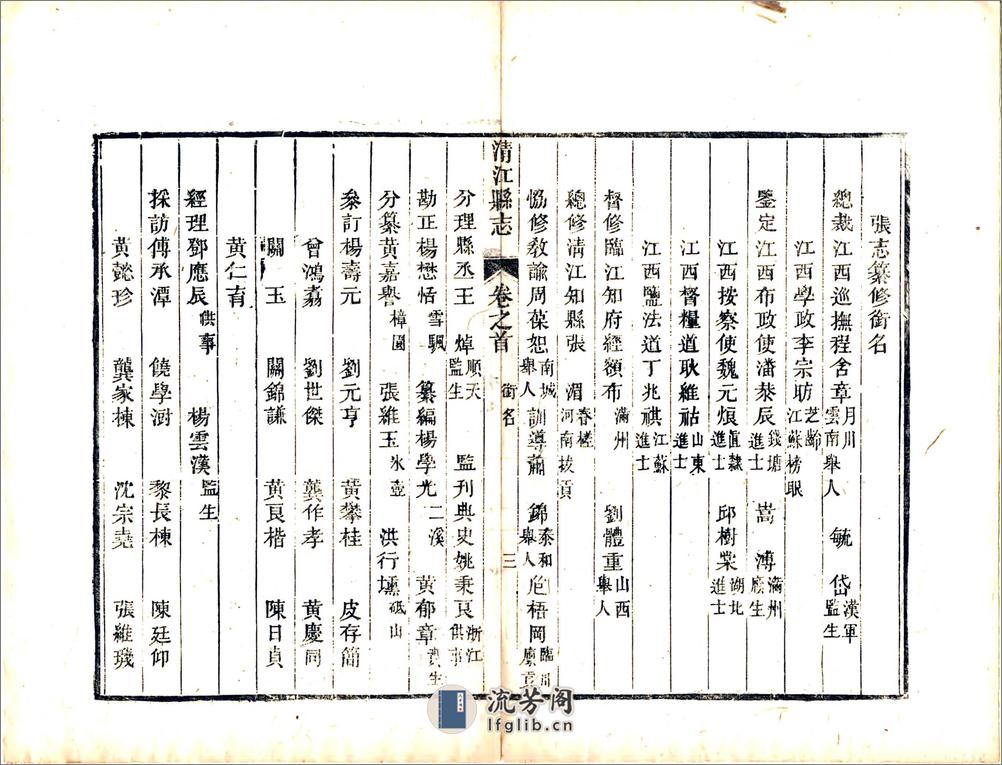 張志纂修銜名
總裁江西巡撫程含章月川雲南舉人 毓岱漢軍監生
江西學政李宗昉芝齡江蘇榜眼
鑒定江西布政使潘恭辰錢塘進士 嵩溥滿州廕生
江西按察使魏元烺直隸進士 邱樹棠湖北進士
江西督糧道耿維祜山東進士
江西鹽法道丁兆祺江蘇進士
督修臨江知府經額布滿州 劉體重山西舉人
總修清江知縣張湄春槎河南拔貢
協修敎諭周葆恕南城舉人 訓導蕭錦泰和舉人 危梧岡臨川廩貢
清江縣志 卷之首 銜名 三
分理縣丞王焯順天監生 監刊典史姚秉良浙江供事
勘正楊懋恬雪颿 纂編楊學光二溪 黃郁章貢生
分纂黃嘉礜樟園 張維玉氷壺 洪行壎砥山
叅訂楊壽元 劉元亨 黃攀桂 皮存簡
曾鴻翥 劉世傑 龔作孝 黃慶同
關玉 關錦謙 黃良楷 陳日貞
黃仁育
經理鄧應辰供事 楊雲漢監生
採訪傅承潭 饒學澍 黎長棟 陳廷仰
黃懿珍 龔家棟 沈宗堯 張維璣
流芳阁
lfglib.cn